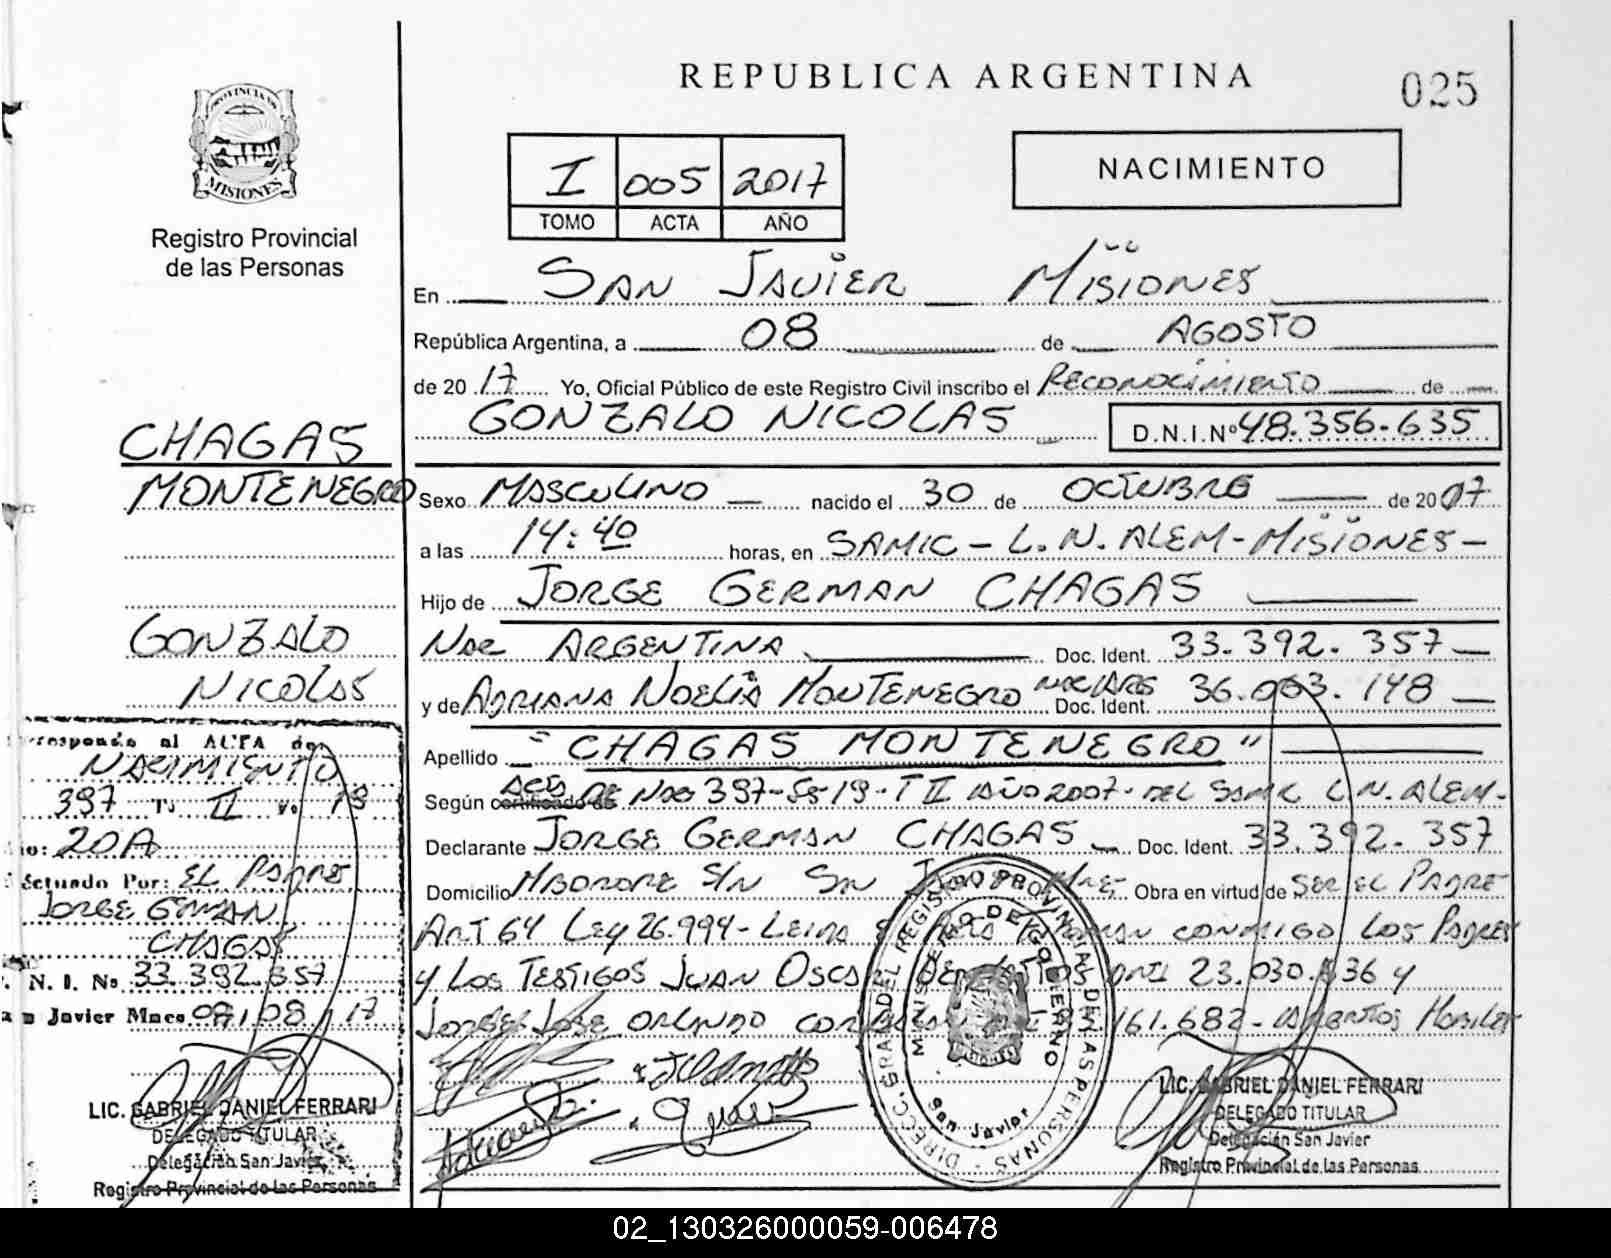 REPUBLICA ARGENTINA
025
PROVINCIA DE
MISIONES
Registro Provincial
de las Personas
I 005 2017
TOMO ACTA AÑO
NACIMIENTO
En SAN JAVIER MISIONES
República Argentina, a 08 de AGOSTO
de 2017 Yo, Oficial Público de este Registro Civil inscribo el RECONOCIMIENTO de
GONZALO NICOLAS D.N.I.Nº 48.356.635
CHAGAS
MONTENEGRO
GONZALO
NICOLAS
Sexo MASCULINO nacido el 30 de OCTUBRE de 2007
a las 14:40 horas, en SAMIC - L.N. ALEM - MISIONES -
Hijo de JORGE GERMAN CHAGAS
Nac ARGENTINA Doc. Ident. 33.392.357
y de ADRIANA NOELIA MONTENEGRO NAC ARG Doc. Ident. 36.063.148
Apellido "CHAGAS MONTENEGRO"
Según certificado de ACTA DE NAC 397 - Fº 19 - T II AÑO 2007 - DEL SAMIC L.N. ALEM -
Declarante JORGE GERMAN CHAGAS Doc. Ident. 33.392.357
Domicilio S/N Obra en virtud de SER EL PADRE
ART 64 Ley 26.994 - Leida el Acta CONMIGO LOS PADRES
y LOS TESTIGOS JUAN OSCAR DNI 23.030. 36 y
JOSE ORLANDO 161.682 -
corresponde al ACTA de
NACIMIENTO
397 Tº II Fº 19
Año: 20
Efectuado Por: EL PADRE
JORGE GERMAN
CHAGAS
D. N. I. Nº 33.392.357
San Javier Mnes 08/08/17
LIC. GABRIEL DANIEL FERRARI
DELEGADO TITULAR
Delegación San Javier
Registro Provincial de las Personas
DIRECC. GRAL. DEL REGISTRO PROVINCIAL DE LAS PERSONAS
MINISTERIO DE GOBIERNO
MISIONES
San Javier
LIC. GABRIEL DANIEL FERRARI
DELEGADO TITULAR
Delegación San Javier
Registro Provincial de las Personas
02_130326000059-006478